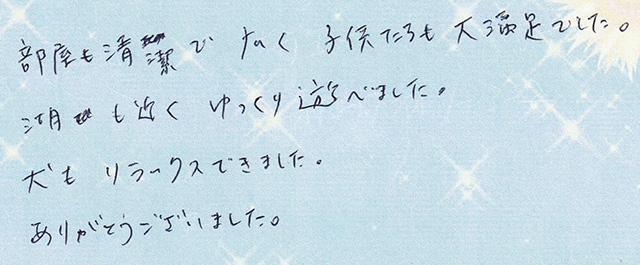 部屋も清潔で広く 子供たちも大満足でした。
湖も近く ゆっくり遊べました。
犬もリラックスできました。
ありがとうございました。